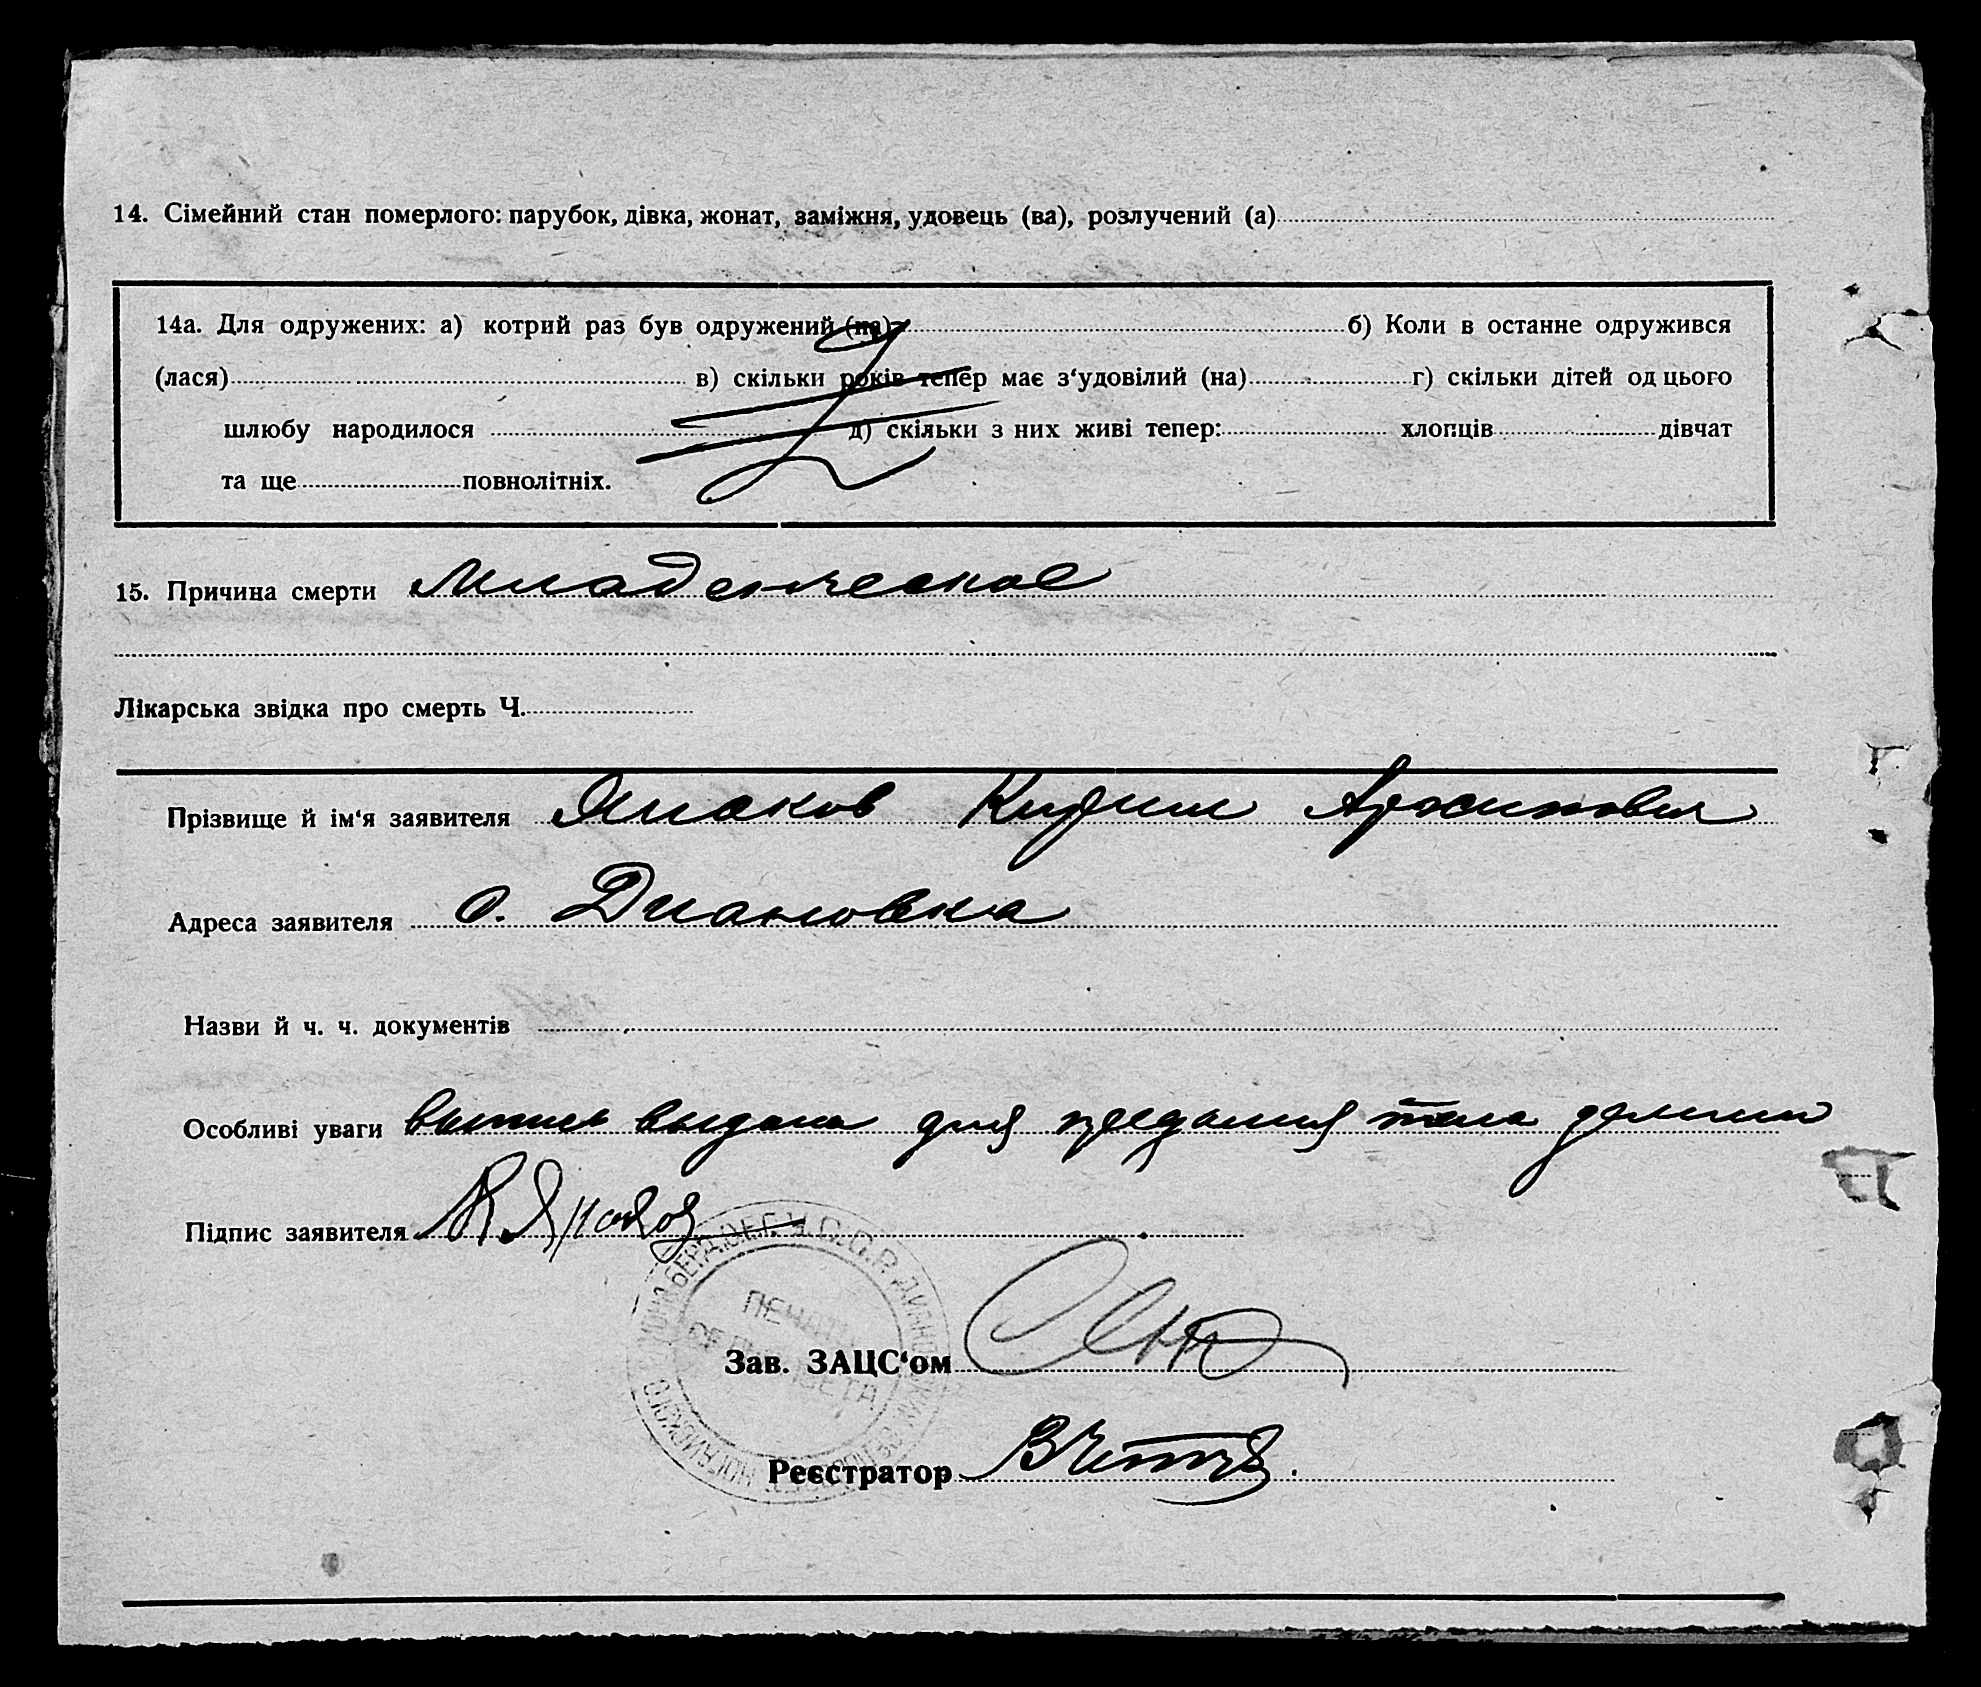 14. Сімейний стан померлого: парубок, дівка, жонат, заміжня, удовець (ва), розлучений (а)
14а. Для одружених: а) котрий раз був одружений (на) б) Коли в останне одружився
(лася) в) скільки років тепер має з‘удовілий (на) г) скільки дітей од цього
шлюбу народилося д) скільки з них живі тепер: хлопців дівчат
та ще повнолітніх.
15. Причина смерти Младенческое
Лікарська звідка про смерть Ч.
Прізвище й ім‘я заявителя Янаков Кирил
Адреса заявителя с. Диановка
Назви й ч. ч. документів
Особливі уваги выпись выдана для предания тела земли
Підпис заявителя К Янаков
ПЕЧАТЬ
Зав. ЗАЦС‘ом
Реєстратор